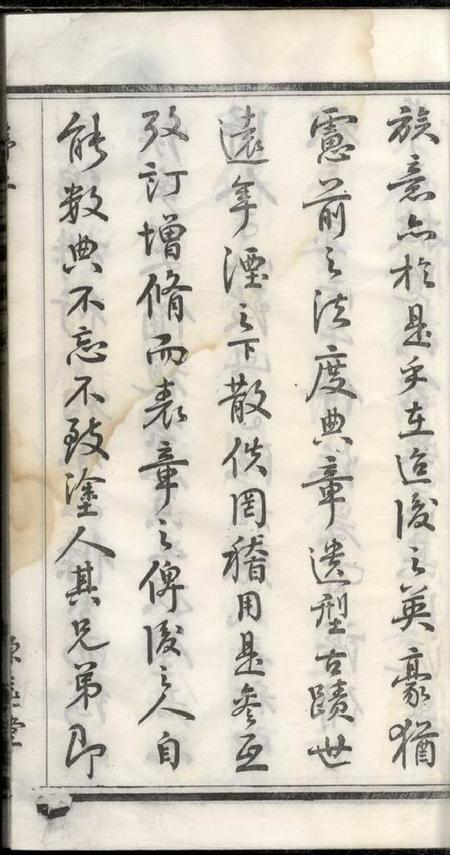 族意亦於是乎在迨後之英豪猶
慮前之法度典章遺型古蹟世
遠年湮之下散佚罔稽用是參互
攷訂增脩而表章之俾後之人自
能數典不忘不致塗人其兄弟即